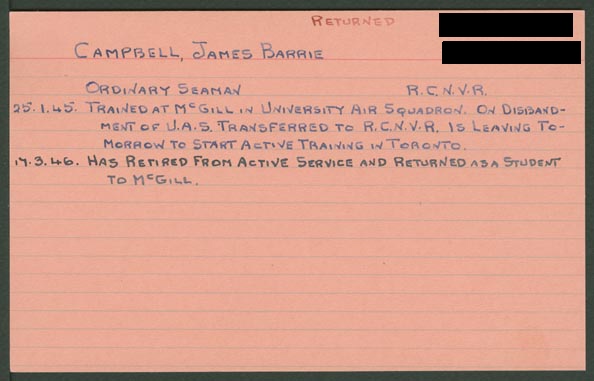 RETURNED
CAMPBELL, JAMES BARRIE
ORDINARY SEAMAN R.C.N.V.R.
25.1.45. TRAINED AT McGILL IN UNIVERSITY AIR SQUADRON. ON DISBAND-
MENT OF U.A.S. TRANSFERRED TO R.C.N.V.R. IS LEAVING TO-
MORROW TO START ACTIVE TRAINING IN TORONTO.
17.3.46. HAS RETIRED FROM ACTIVE SERVICE AND RETURNED AS A STUDENT
TO McGILL.